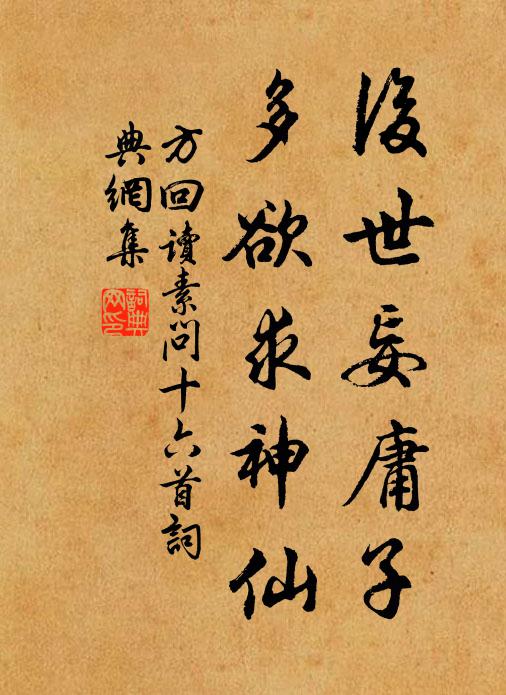 後世妄庸子
多欲求神仙
方回讀素問十六首詞
典網集
詞典
网印